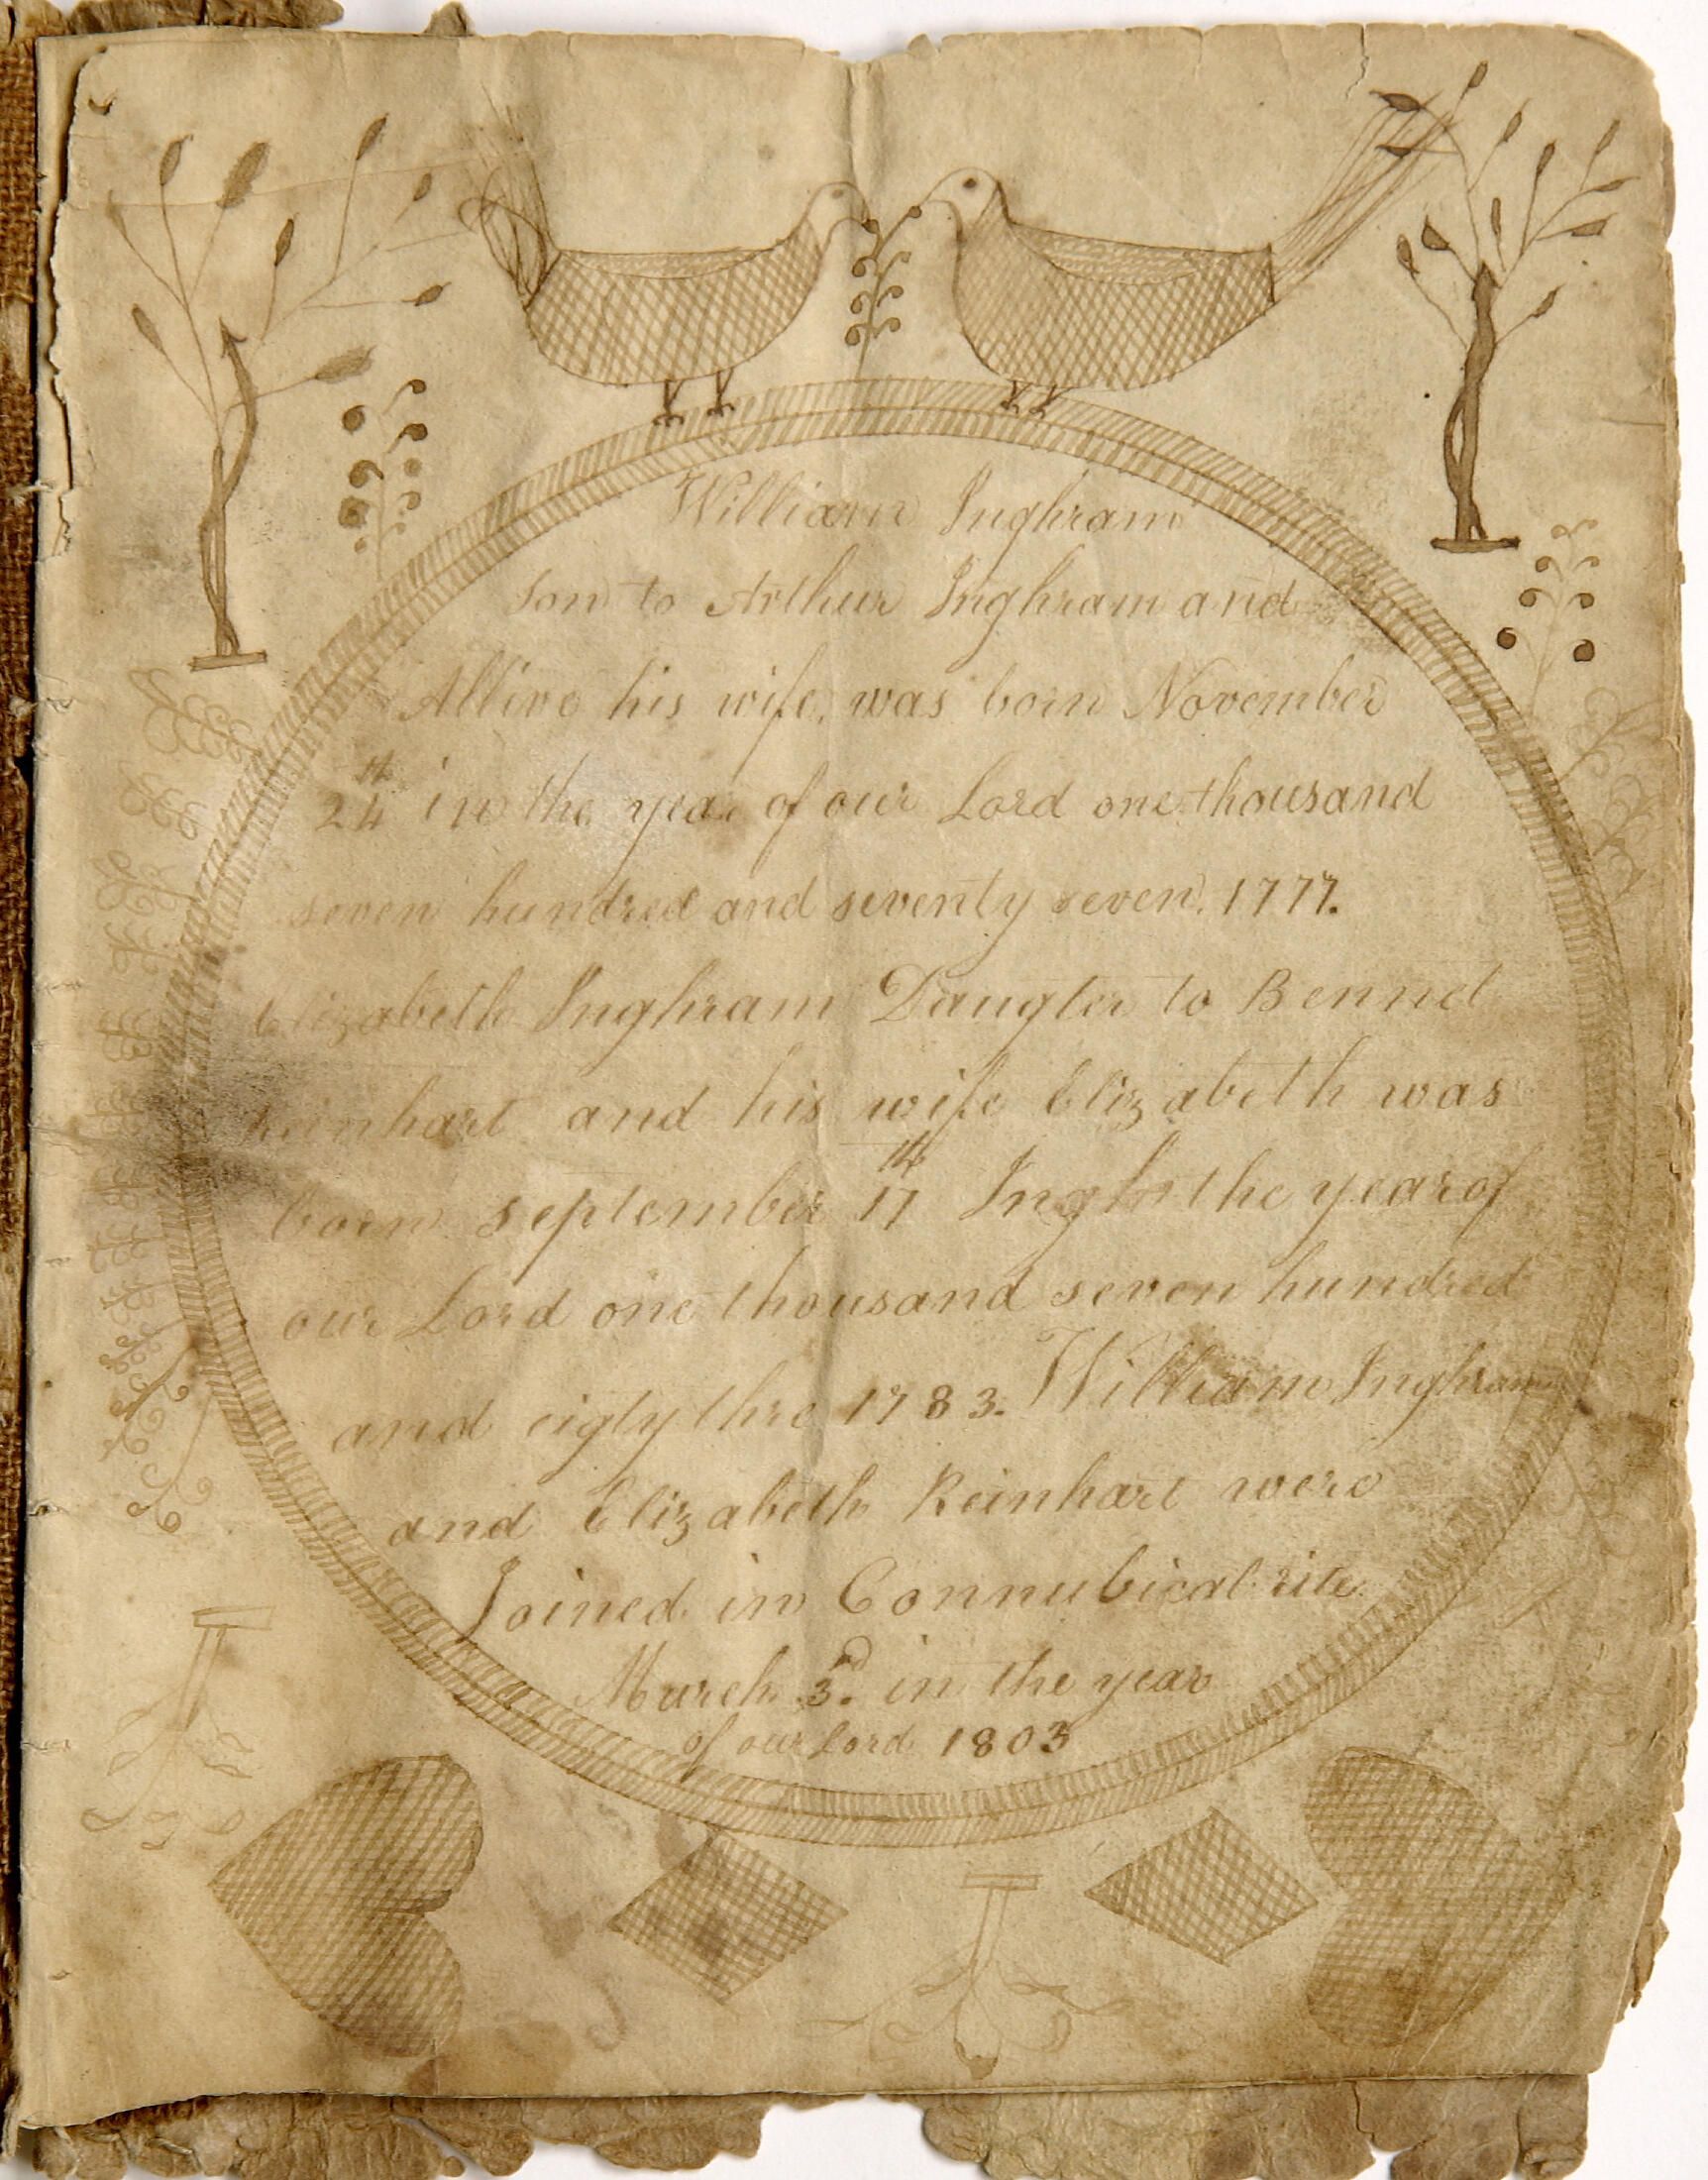 William Inghram
son to Arthur Inghram and
Allive his wife, was born November
24th in the year of our Lord one thousand
seven hundred and seventy seven. 1777.
Elizabeth Inghram Daugter to Bennet
Reinhart and his wife Elizabeth was
born september 17th the year of
our Lord one thousand seven hundred
and eigty thre 1783. William Inghram
and Elizabeth Reinhart were
Joined in Connubical rite
March 3d. in the year
of our Lord 1803